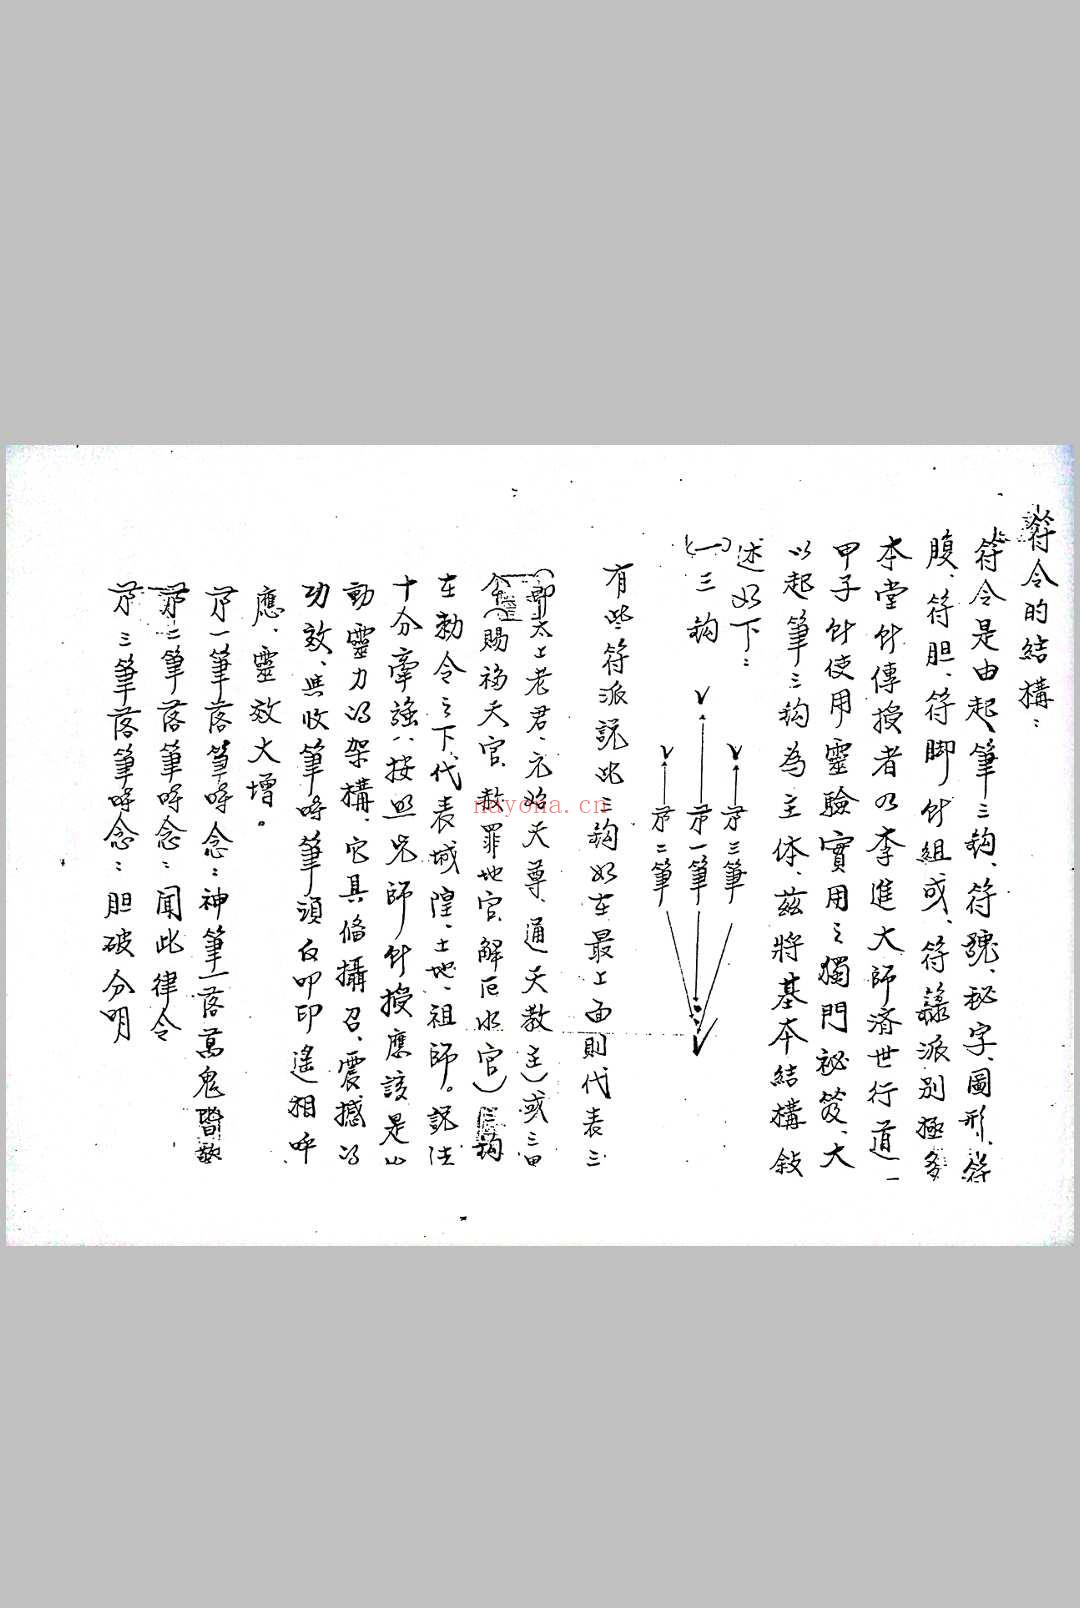 符令的結構：
符令是由起筆三鈎、符號、秘字、圖形、符
腹、符胆、符脚所組成、符籙派別極多
本堂所傳授者乃李進大師濟世行道一
甲子所使用靈驗實用之獨門祕笈、大
以起筆三鈎為主体、茲將基本結構敍
述如下：
(一)三鈎
第三筆
第一筆
第二筆
有些符派說此三鈎如在最上面則代表三
太上老君、元始天尊、通天教主）或三
（賜福天官、赦罪地官、解厄水官）鈎
在勅令之下、代表城隍、土地、祖師。說法
十分牽強、按照先師所授應該是
動靈力的架構、它具備攝召、震撼的
功效、與收筆時筆頭叩印遙相呼
應、靈效大增。
第一筆落筆時念：神筆一落萬鬼
第二筆落筆時念：聞此律令
第三筆落筆時念：胆破分明
nayona.cn